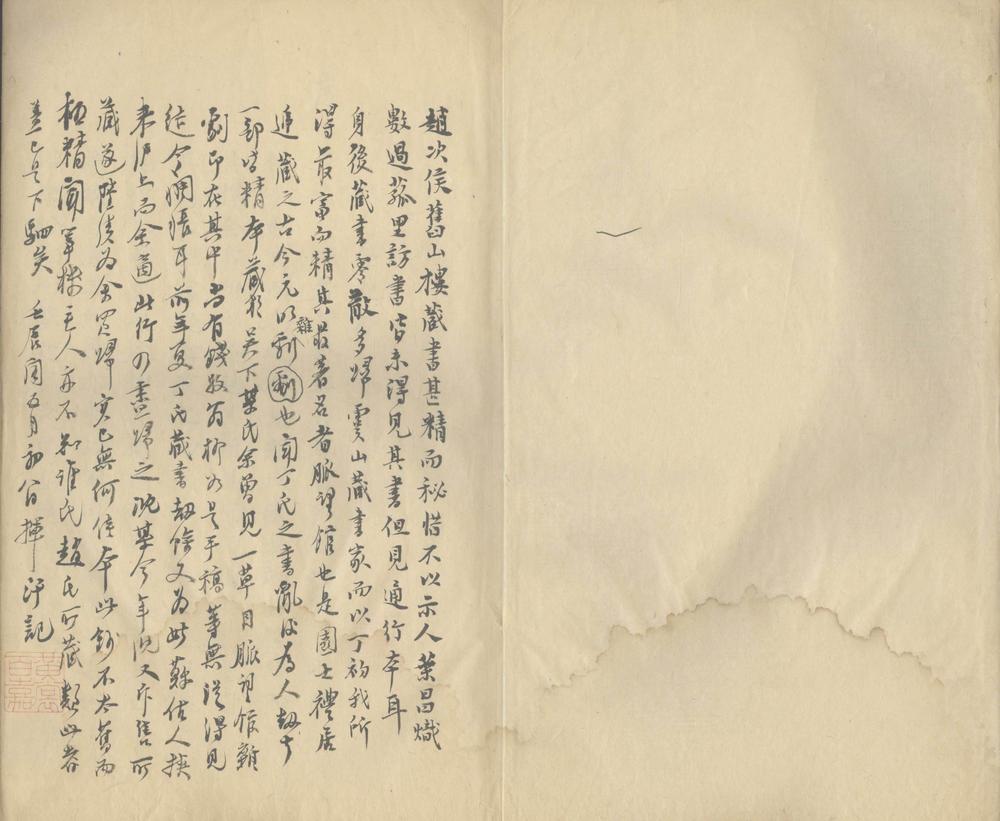 趙次侯舊山樓藏書甚精而秘惜不以示人葉昌熾
數過菰里訪書皆未得見其書但見通行本耳
身後藏書零散多歸虞山藏書家而以丁初我所
得最富而精其最著名者脈望館也是園士禮居
遞藏之古今元明雜劇也聞丁氏之書亂後為人劫去
一部皆精本藏於吳下某氏余曾見一草目脈望館雜
劇即在其中尚有錢牧翁柳如是手稿等無從得見
徒令悵悵耳前年夏丁氏藏書劫餘又為此蘇估人挾
來滬上而余適北行乃盡歸之沈某今年沈又斥售所
藏遂陸續為余買歸實已無何佳本此鈔不太舊而
極精聞筆樓主人亦不知誰氏趙氏所藏類此者
蓋已是下駟矣 壬辰閏五月初八日 揮汗記